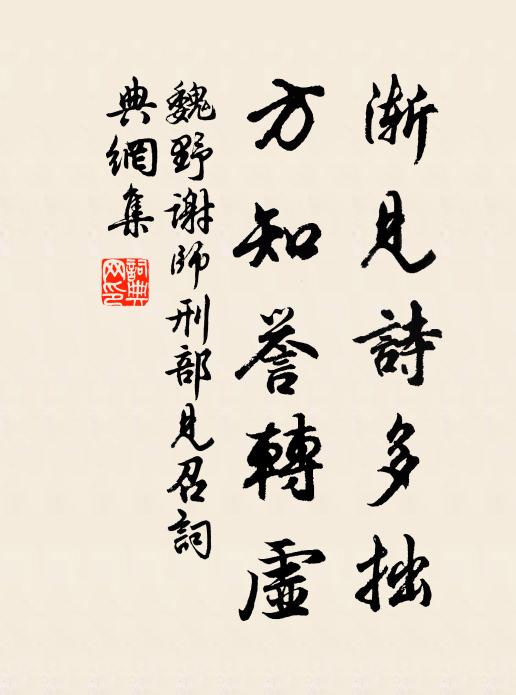 漸見詩多拙
方知誉轉虛
魏野謝師刑部見召詞
典網集
詞典
网印